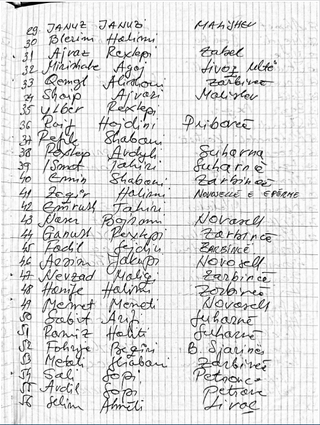 29 JANUZ JANUZI MALISHEV
30 Blerim Halimi
31 Ajvaz Rexhepi Zabel
32 Mirishahe Agaj Livoç
33 Qemajl Alitoshi Zarbince
34 Shaip Ajvazi Malishev
35 Ylber Rexhepi
36 Raif Hajdini Pribovcë
37 Refik Shabani
38 Rexhep Avdyli Suharna
39 Ismet Tahiri Suharnë
40 Emin Shabani Zarbincë
41 Zeqir Halimi NOVOSELLË E EPËRME
42 Ymrush Tahiri
43 Naser Bajrami Novosell
44 Ganush Rexhepi Zarbincë
45 Fadil Sejdiu ZARBINCË
46 Azem Jakupi Novosell
47 Nevzad Maliqi Zarbincë
48 Hanife Halimi Zarbincë
49 Mehmet Mehdi Novosell
50 Sabit Arifi Suharnë
51 Ramiz Haliti Suharnë
52 Fahrije Beqiri B. Sjarinës
53 Metali Shabani Zarbincë
54 Sali Sopi Petrovc
55 Avdil Sopi Petrovc
56 Selim Ahmeti Livoç